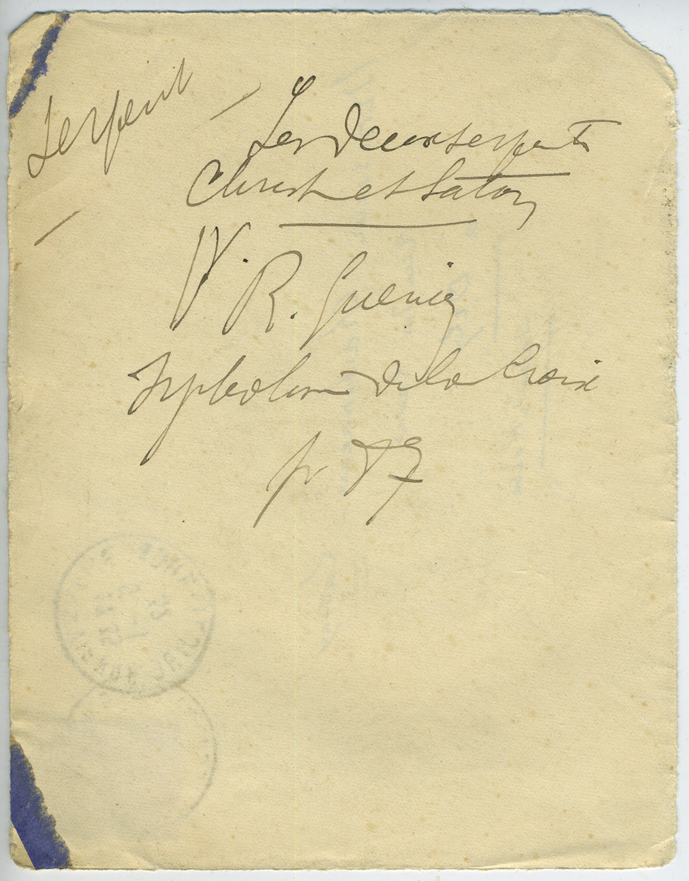 Serpent
Les deux serpents
Christ et Satan
V. R. Guénon
Symbolisme de la Croix
p. 87